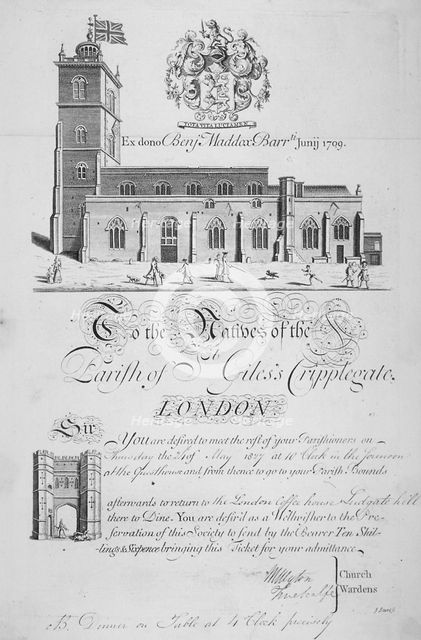 TOTA VITA LUCTAMEN
Ex dono Benj. Maddox Barrtt Junij 1709.
To the Natives of the
Parish of St Giles's Cripplegate.
LONDON.
Sir
You are desired to meet the rest of your Parishioners on
Thursday the 24 of May 1827 at 10 Clock in the forenoon
at the Questhouse and from thence to go to your Parish Bounds
afterwards to return to the London Coffee house Ludgate hill
there to Dine. You are desir'd as a Wellwisher to the Pre-
servation of this Society to send by the Bearer Ten Shil-
lings & Sixpence bringing this Ticket for your admittance
Church
Wardens
NB. Dinner on Table at 4 Clock precisely